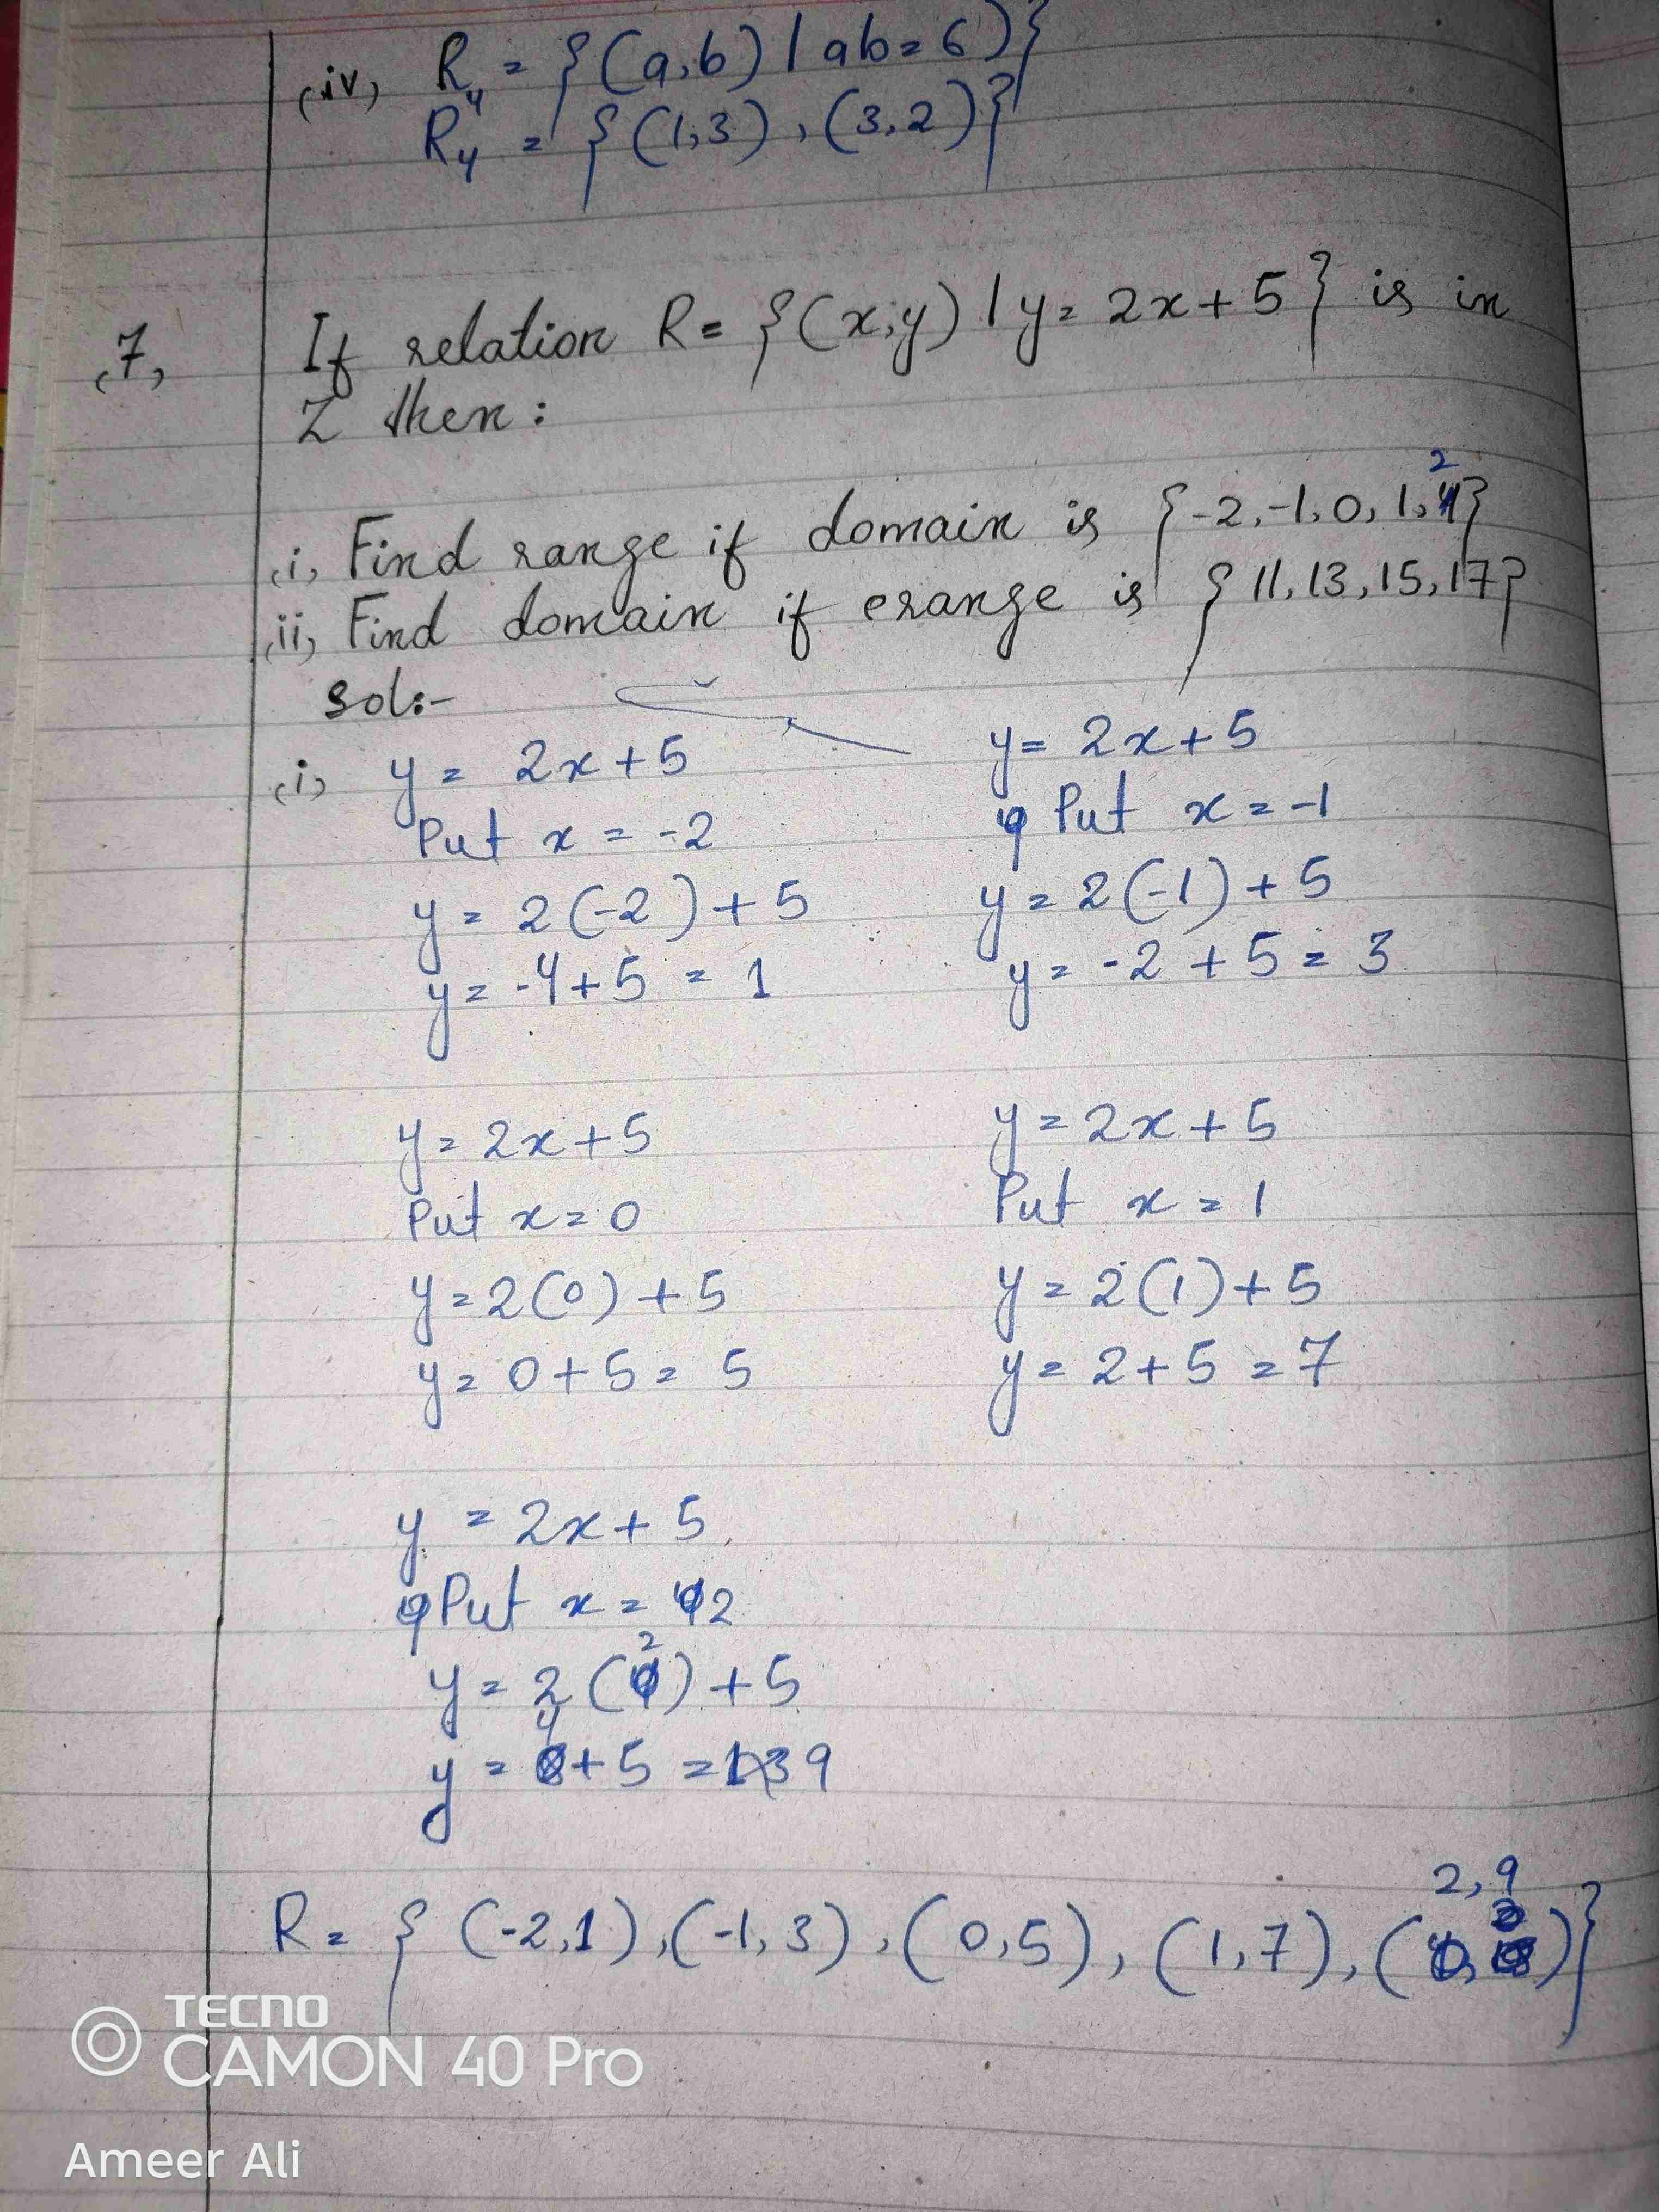 (iv) R₄ = {(a,b) | ab = 6)}
R₄ = {(1,3), (3,2)}
(7) If relation R = {(x,y) | y = 2x + 5} is in
Z then:
2
(i) Find range if domain is {-2, -1, 0, 1, 4}
(ii) Find domain if erange is {11, 13, 15, 17}
Sol:-
(i) y = 2x + 5
Put x = -2
y = 2(-2) + 5
y = -4 + 5 = 1
y = 2x + 5
Put x = -1
y = 2(-1) + 5
y = -2 + 5 = 3
y = 2x + 5
Put x = 0
y = 2(0) + 5
y = 0 + 5 = 5
y = 2x + 5
Put x = 1
y = 2(1) + 5
y = 2 + 5 = 7
y = 2x + 5
Put x = 2
y = 2(2) + 5
y = 4 + 5 = 9
2, 9
R = { (-2,1), (-1,3), (0,5), (1,7), ( )}
TECNO
CAMON 40 Pro
Ameer Ali